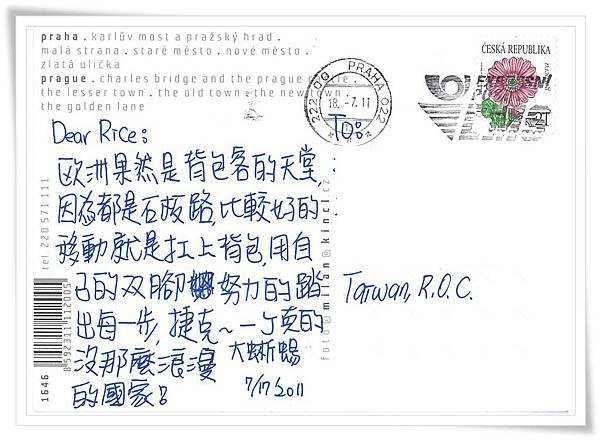 praha . karlův most a pražský hrad .
malá strana . staré město . nové město .
zlatá ulička
prague . charles bridge and the prague
the lesser town . the old town . the new town .
the golden lane
ČESKÁ REPUBLIKA
PRAHA 022
222 00
18.-7.11
Dear Rice:
To:
欧洲果然是背包客的天堂,
因為都是石版路,比較好的
移動就是扛上背包,用自
己的双腳努力的踏
出每一步,捷克~一丁真的
沒那麼浪漫
的國家?
大蜥蜴
7/17 2011
Taiwan, R.O.C.
tel 220 571 111
foto @ milan @ kincl.cz
8592311112005
1646